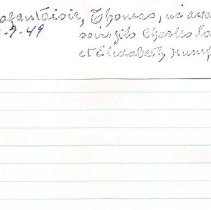 afantaisie, Thomas, né ava
-9-49 soir, fils Charles La
et Elizabeth